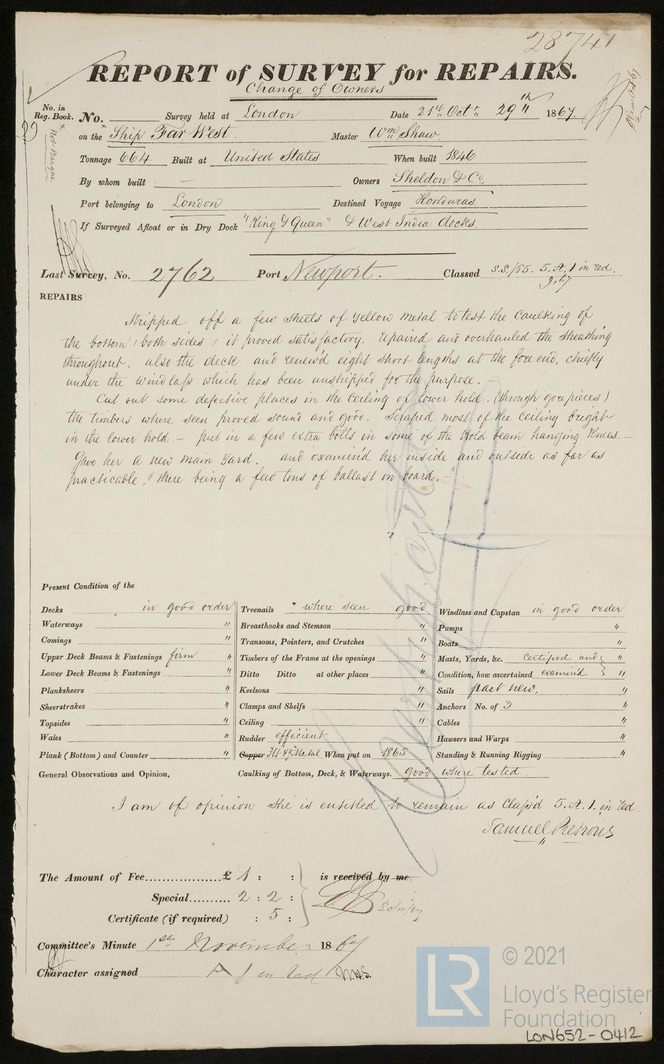 28741
REPORT of SURVEY for REPAIRS.
Change of Owners
No. in
Reg. Book.
No. Survey held at London Date 21st Octr 29th 1867
on the Ship Far West Master Wm Shaw
Tonnage 664 Built at United States When built 1846
By whom built — Owners Sheldon & Co.
Port belonging to London Destined Voyage Honduras
If Surveyed Afloat or in Dry Dock "King & Queen" & West India docks
Last Survey, No. 2762 Port Newport. Classed S.S./65. 5.A.1 in red.
9,67
REPAIRS
Stripped off a few sheets of yellow metal to test the caulking of
the bottom (both sides) it proved satisfactory. repaired and overhauled the sheathing
throughout, also the deck, and renew'd eight short lengths at the fore end, chiefly
under the windlass which has been unshipped for the purpose.
Cut out some defective places in the ceiling of lower hold. (through gore pieces)
the timbers where seen proved sound and good. Scraped most of the ceiling bright
in the lower hold — put in a few extra bolts in some of the Hold beam hanging Knees. —
Gave her a new main yard, and examin'd her inside and outside as far as
practicable, there being a few tons of ballast on board. —
Certificate
Present Condition of the
Decks in good order
Waterways "
Comings "
Upper Deck Beams & Fastenings firm "
Lower Deck Beams & Fastenings "
Planksheers "
Sheerstrakes "
Topsides "
Wales "
Plank (Bottom) and Counter "
Treenails where seen good
Breasthooks and Stemson "
Transoms, Pointers, and Crutches "
Timbers of the Frame at the openings "
Ditto Ditto at other places "
Keelsons "
Clamps and Shelfs "
Ceiling "
Rudder efficient
Copper Metal When put on 1865
Windlass and Capstan in good order
Pumps "
Boats "
Masts, Yards, &c. certified and "
Condition, how ascertained examin'd "
Sails part new, "
Anchors No. of 3 "
Cables "
Hawsers and Warps "
Standing & Running Rigging "
General Observations and Opinion, Caulking of Bottom, Deck, & Waterways. good where tested
I am of opinion she is entitled to remain as Class'd 5.A.1. in red.
Samuel
The Amount of Fee £ 1 : : is received by me.
Special 2 : 2 :
Certificate (if required) : 5 :
Committee's Minute 1st November 1867
Character assigned A 1 in red
© 2021
LR
Lloyd's Register
Foundation
LON652-0412